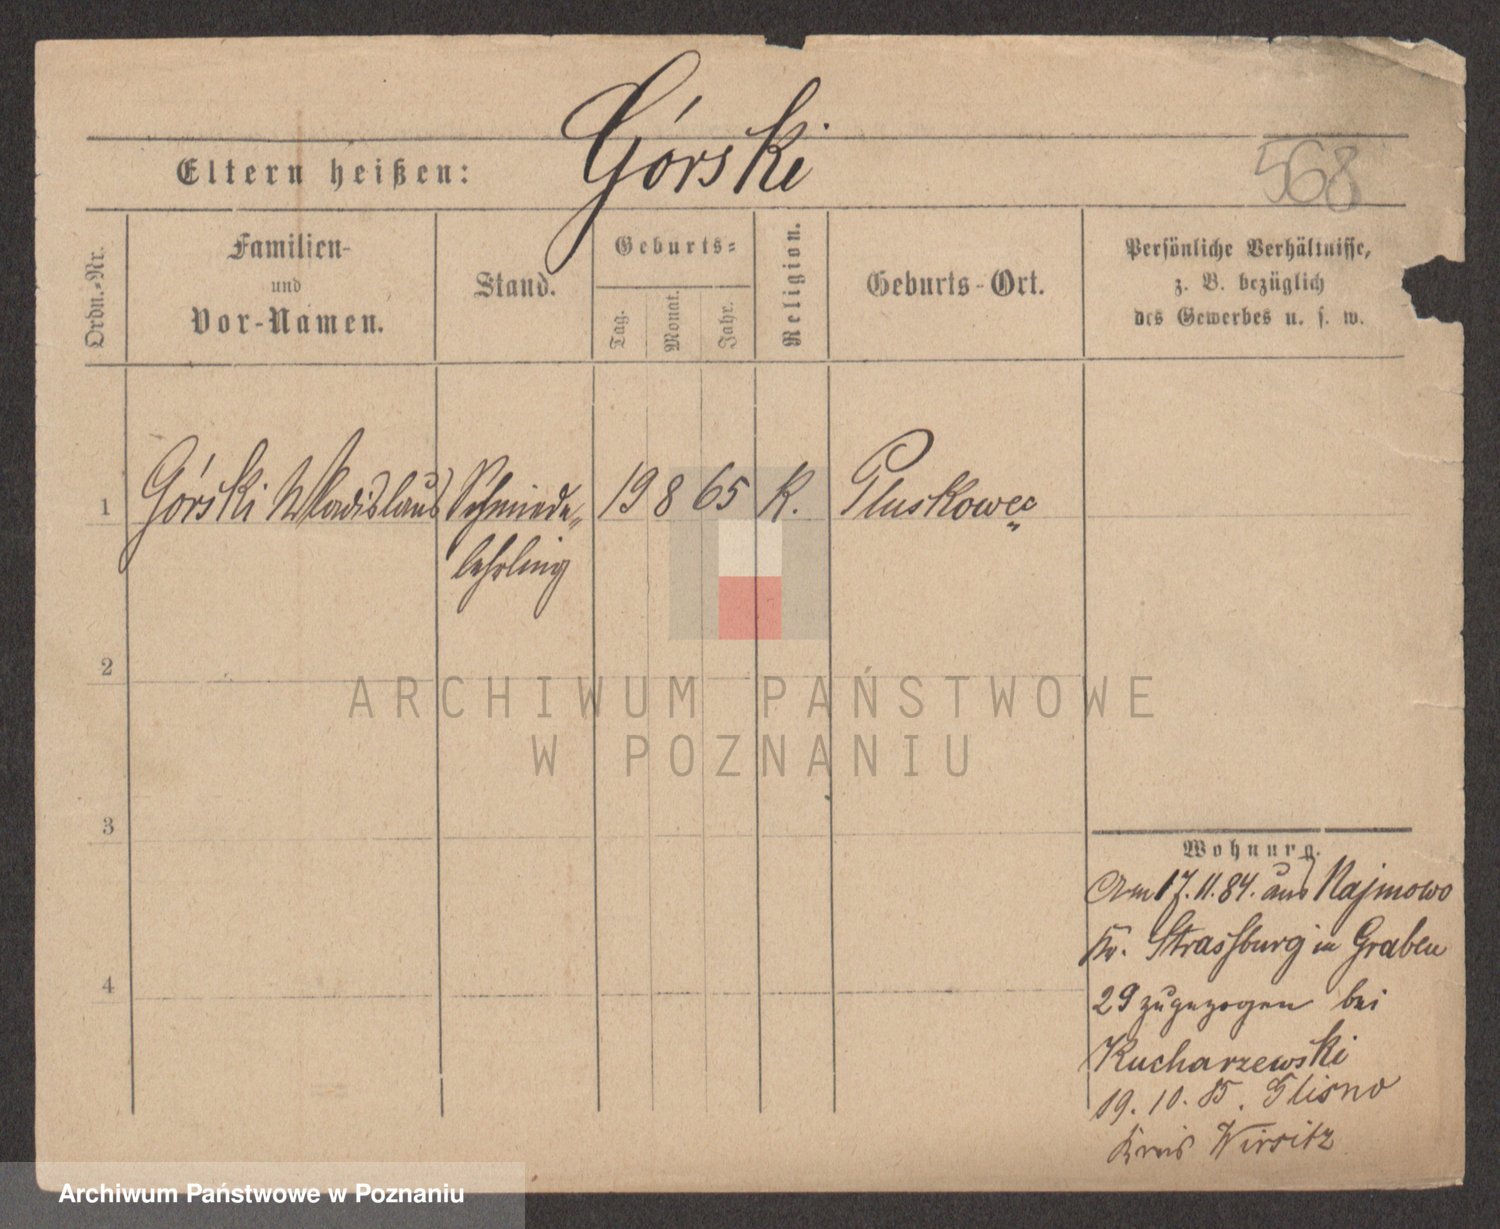 Górski
568
Eltern heißen:
Ordn.-Nr.
Familien-
und
Vor-Namen.
Stand.
Geburts-
Tag.
Monat.
Jahr.
Religion.
Geburts-Ort.
Persönliche Verhältnisse,
z. B. bezüglich
des Gewerbes u. s. w.
1 Górski Wladislaus Schmiede- 19 8 65 K. Pluskowec
lehrling
2
ARCHIWUM PAŃSTWOWE
W POZNANIU
3
Wohnung.
Am 17. 11. 84. aus Najmowo
Kr. Strassburg in Graben
4
29 zugezogen bei
Kucharzewski
19. 10. 85. Glisno
Kreis Wirsitz
Archiwum Państwowe w Poznaniu